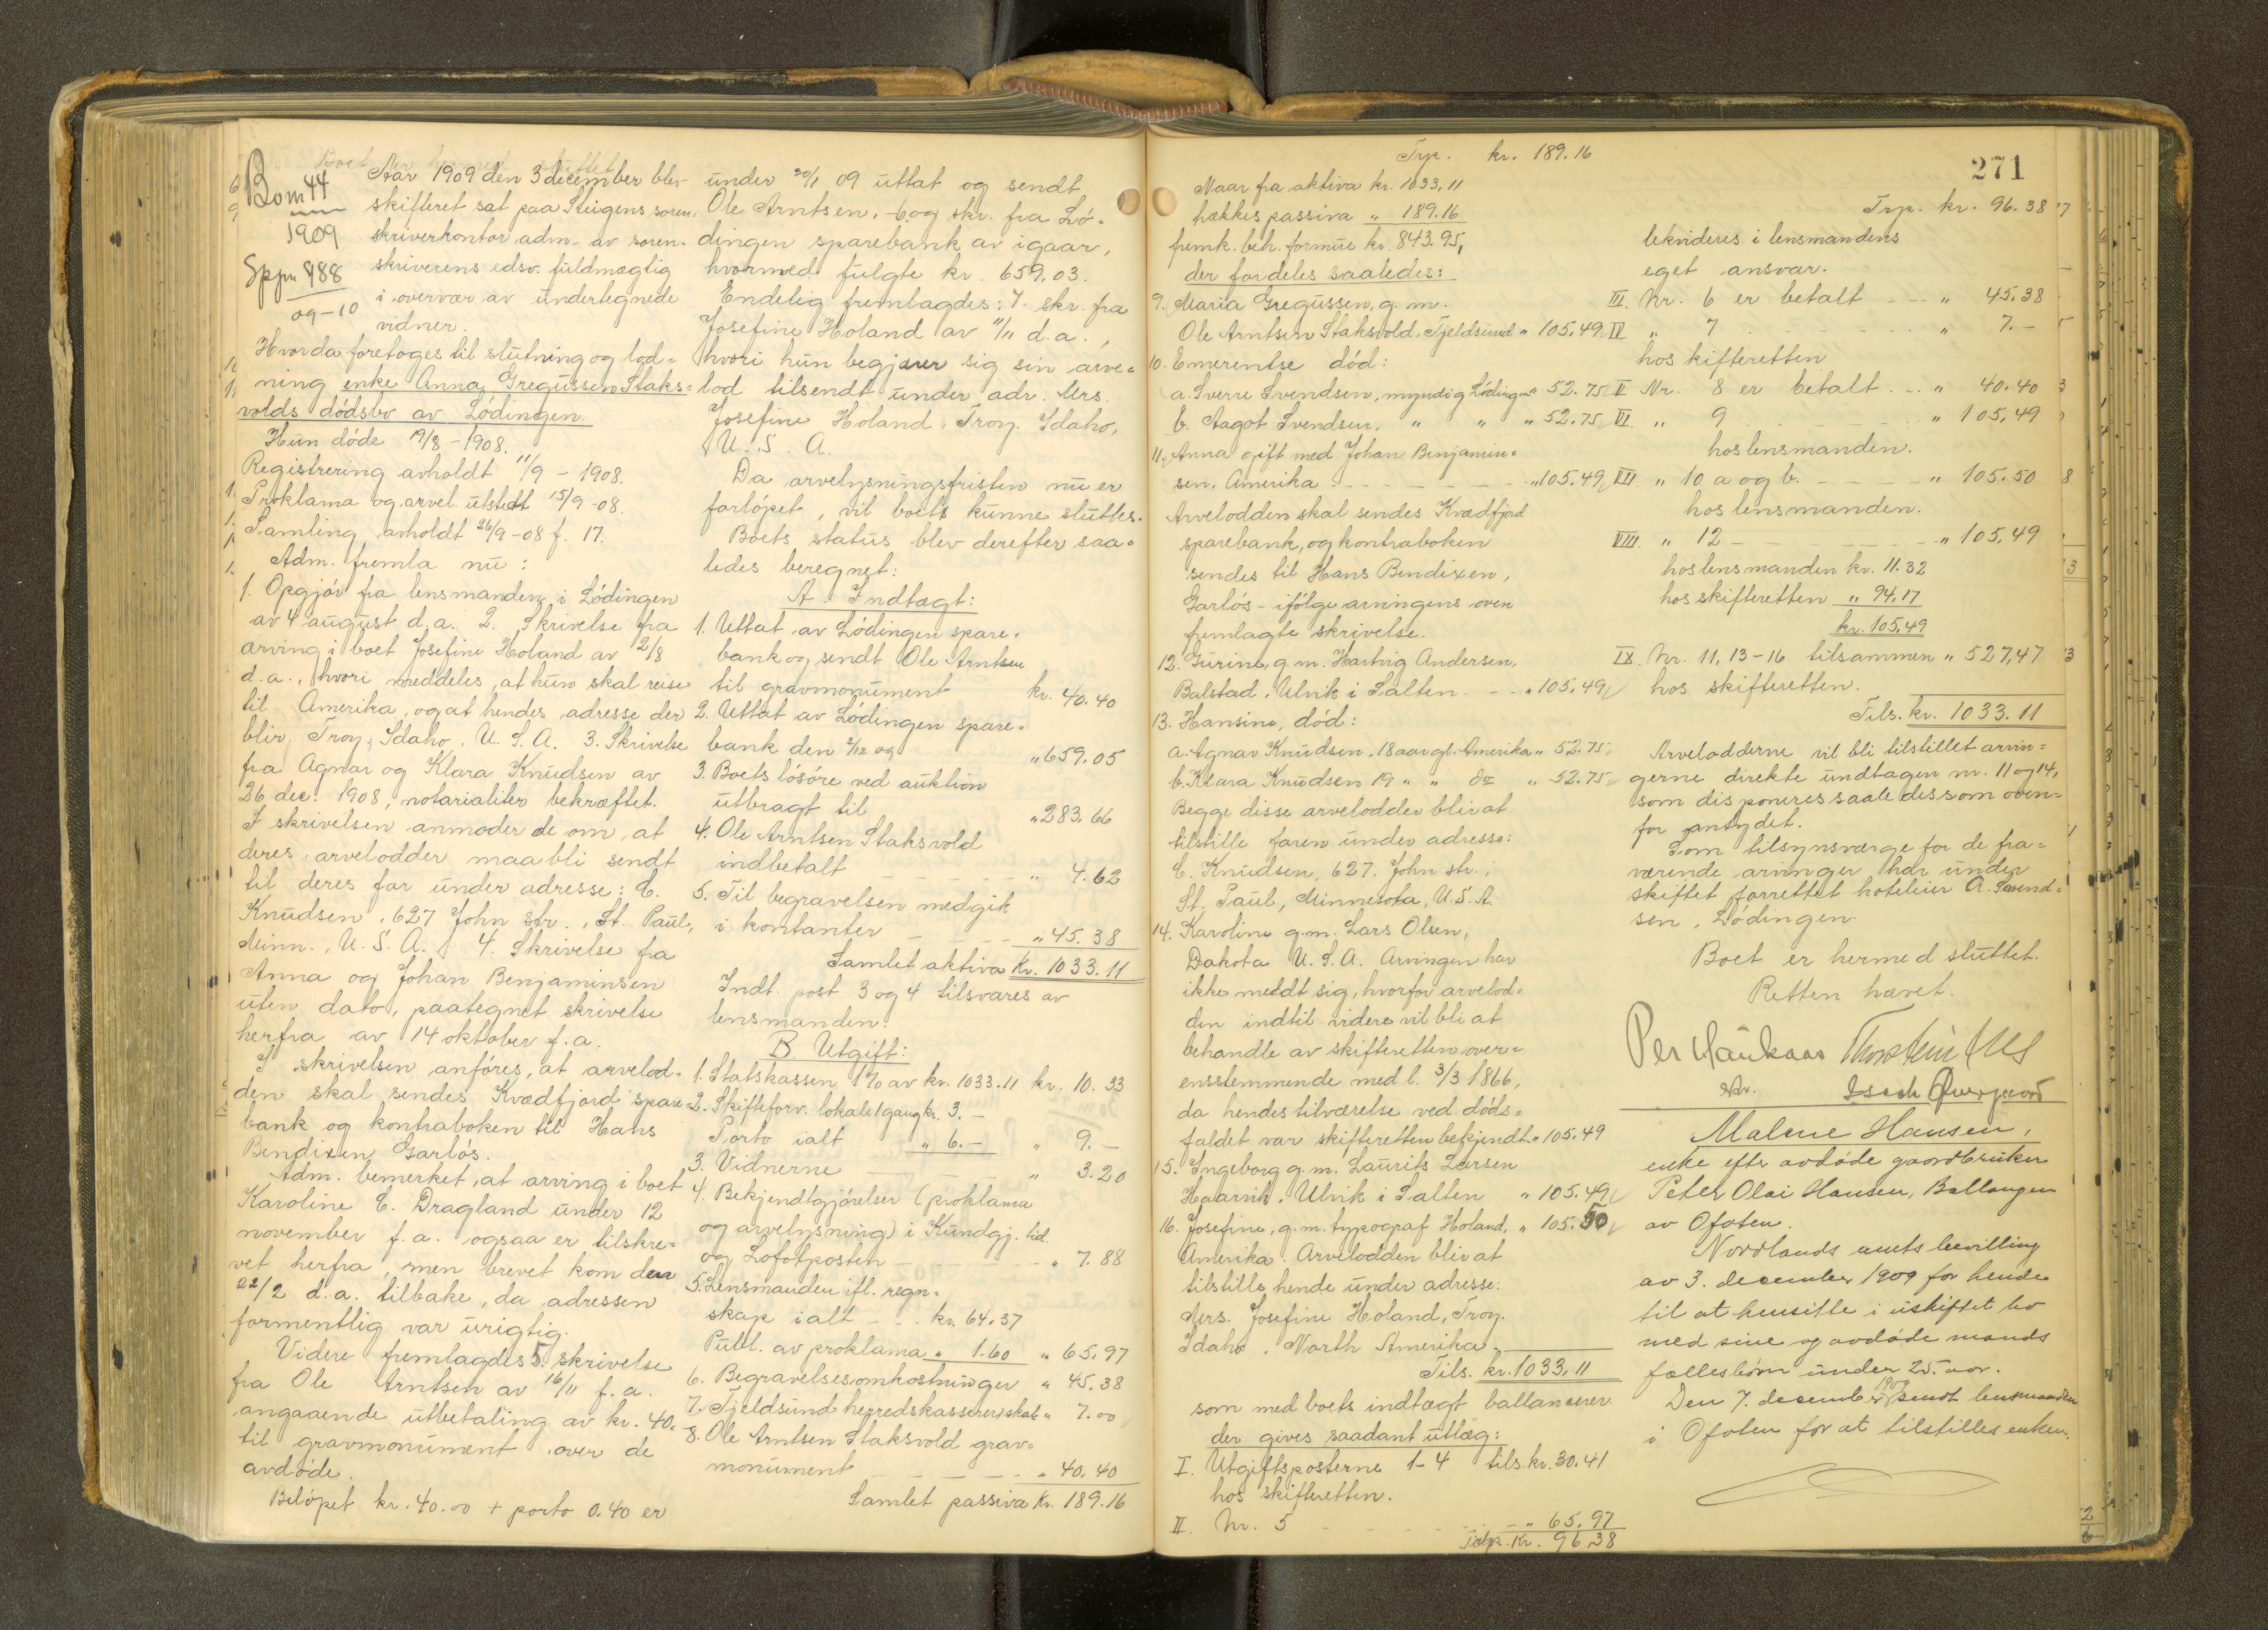 Boet er hermed sluttet
Bom 44
1909
Sppr. 488
09-10
Aar 1909 den 3 december blev
skifteret sat paa Steigens soren-
skriverkontor adm. av soren-
skriverens edsv. fuldmægtig
i overvær av undertegnede
vidner.
Hvorda foretoges til slutning og lod=
ning enke Anna Gregussen Staks=
volds dødsbo av Lødingen.
Hun døde 19/8 - 1908.
Registrering avholdt 11/9 - 1908.
Proklama og arvel. utstedt 15/9 -08.
Samling avholdt 26/9 -08 f. 17.
Adm. fremla nu:
1. Opgjør fra lensmanden i Lødingen
av 4 august d.a. 2. Skrivelse fra
arving i boet Josefine Holand av 2/8
d.a., hvori meddeles, at hun skal reise
til Amerika, og at hendes adresse der
blir Troy, Idaho, U. S. A. 3. Skrivelse
fra Agnar og Klara Knudsen av
26 dec. 1908, notarialiter bekræftet.
I skrivelsen anmoder de om, at
deres arvelodder maa bli sendt
til deres far under adresse: C.
Knudsen, 627 John str., St. Paul,
Minn., U. S. A. 4. Skrivelse fra
Anna og Johan Benjaminsen
uten dato, paategnet skrivelse
herfra av 14 oktober f.a.
I skrivelsen anføres, at arvelod=
den skal sendes Kvædfjord spare=
bank og kontraboken til Hans
Bendixen Garløs.
Adm. bemerket, at arving i boet
Karoline C. Dragland under 12
november f.a. ogsaa er tilskre=
vet herfra, men brevet kom den
22/2 d.a. tilbake, da adressen
formentlig var urigtig.
Videre fremlagdes 5. skrivelse
fra Ole Arntsen av 16/11 f.a.
angaaende utbetaling av kr. 40.
til gravmonument over de
avdøde.
Beløpet kr. 40.00 + porto 0.40 er
under 20/1 09 uttat og sendt
Ole Arntsen. 6. og skr. fra Lø-
dingen sparebank av igaar,
hvormed fulgte kr. 659.03.
Endelig fremlagdes: 7. skr. fra
Josefine Holand av 11/11 d.a.,
hvori hun begjærer sig sin arve=
lod tilsendt under adr. Mrs.
Josefine Holand, Troy, Idaho,
U. S. A.
Da arvelysningsfristen nu er
forløpet, vil boets kunne sluttes.
Boets status blev derefter saa=
ledes beregnet:
A. Indtægt:
1. Uttat av Lødingen spare.
bank og sendt Ole Arntsen
til gravmonument kr. 40.40
2. Uttat av Lødingen spare.
bank den 2/12 og " 659.05
3. Boets løsøre ved auktion
utbragt til " 283.66
4. Ole Arntsen Staksvold
indbetalt " 4.62
5. Til begravelsen medgik
i kontanter " 45.38
Samlet aktiva Kr. 1033.11
Indt. post 3 og 4 tilsvares av
lensmanden.
B Utgift:
1. Statskassen 1% av kr. 1033.11 kr. 10.33
2. Skifteforv. lokale 1 gang kr. 3.-
Porto ialt " 6.- " 9.-
3. Vidnerne " 3.20
4. Bekjendtgjørelser (proklama
og arvelysning) i Kundgj. tid.
og Lofotposten " 7.88
5. Lensmanden ifl. regn=
skap ialt kr. 64.37
Publ. av proklama " 1.60 " 65.97
6. Begravelsesomkostninger " 45.38
7. Tjeldsund herredskasserer, skat " 7.00
8. Ole Arntsen Staksvold grav=
monument " 40.40
Samlet passiva Kr. 189.16
271
Trp. kr. 189.16
Naar fra aktiva kr. 1033.11
trækkes passiva " 189.16
fremk. beh. formue kr. 843.95,
der fordeles saaledes:
9. Maria Gregussen, g. m.
Ole Arntsen Staksvold, Tjeldsund " 105.49
10. Emerentse død:
a. Sverre Svendsen, myndig Lødingen " 52.75
b. Aagot Svendsen, " " " 52.75
11. Anna gift med Johan Benjamin=
sen, Amerika " 105.49
Arvelodden skal sendes Kvædfjord
sparebank, og kontraboken
sendes til Hans Bendixen,
Garløs - ifølge arvingens oven
fremlagte skrivelse.
12. Jurine, g. m. Hartvig Andersen,
Balstad, Ulvik i Salten " 105.49
13. Hansine, død:
a. Agnar Knudsen, 18 aar gl. Amerika " 52.75
b. Klara Knudsen 19 " " do " 52.75
Begge disse arvelodder blir at
tilstille faren under adresse:
C. Knudsen, 627 John str.,
St. Paul, Minnesota, U. S. A.
14. Karoline g. m. Lars Olsen,
Dakota U. S. A. Arvingen har
ikke meldt sig, hvorfor arvelod=
den indtil videre vil bli at
behandle av skifteretten over=
ensstemmende med l. 3/3 1866,
da hendes tilværelse ved døds=
faldet var skifteretten bekjendt " 105.49
15. Ingeborg g. m. Laurits Larsen
Haarvik, Ulvik i Salten " 105.49
16. Josefine, g. m. typograf Holand, " 105.50
Amerika. Arvelodden blir at
tilstille hende under adresse:
Mrs. Josefine Holand, Troy.
Idaho, North Amerika.
Tils. kr. 1033.11
som med boets indtægt ballanserer.
der gives saadant utlæg:
I. Utgiftsposterne 1-4 tils. kr. 30.41
hos skifteretten.
II. Nr. 5 " 65.97
Trp. Kr. 96.38
Trp. kr. 96.38
likvideres i lensmandens
eget ansvar.
III. Nr. 6 er betalt " 45.38
IV " 7 " 7.-
hos skifteretten
V Nr. 8 er betalt " 40.40
VI. " 9 " 105,49
hos lensmanden.
VII. " 10 a og b. " 105.50
hos lensmanden.
VIII. " 12 " 105,49
hos lensmanden kr. 11.32
hos skifteretten " 94.17
kr. 105,49
IX. Nr. 11, 13-16 tilsammen " 527,47
hos skifteretten.
Tils. kr. 1033.11
Arvelodderne vil bli tilstillet arvin=
gerne direkte undtagen nr. 11 og 14,
som disponeres saaledes som oven=
for antydet.
Som tilsynsværge for de fra=
værende arvinger har under
skiftet forrettet hoteleier A. Svend=
sen, Lødingen.
Boet er hermed sluttet.
Retten hævet.
Per
Malene Hansen,
enke efter avdøde gaardbruker
Peter Olai Hansen, Ballangen
av Ofoten.
Nordlands amts bevilling
av 3. december 1909 for hende
til at hensitte i uskiftet bo
med sine og avdøde mands
fællesbørn under 25 aar.
Den 7. december 1909 sendt lensmanden
i Ofoten for at tilstilles enken.